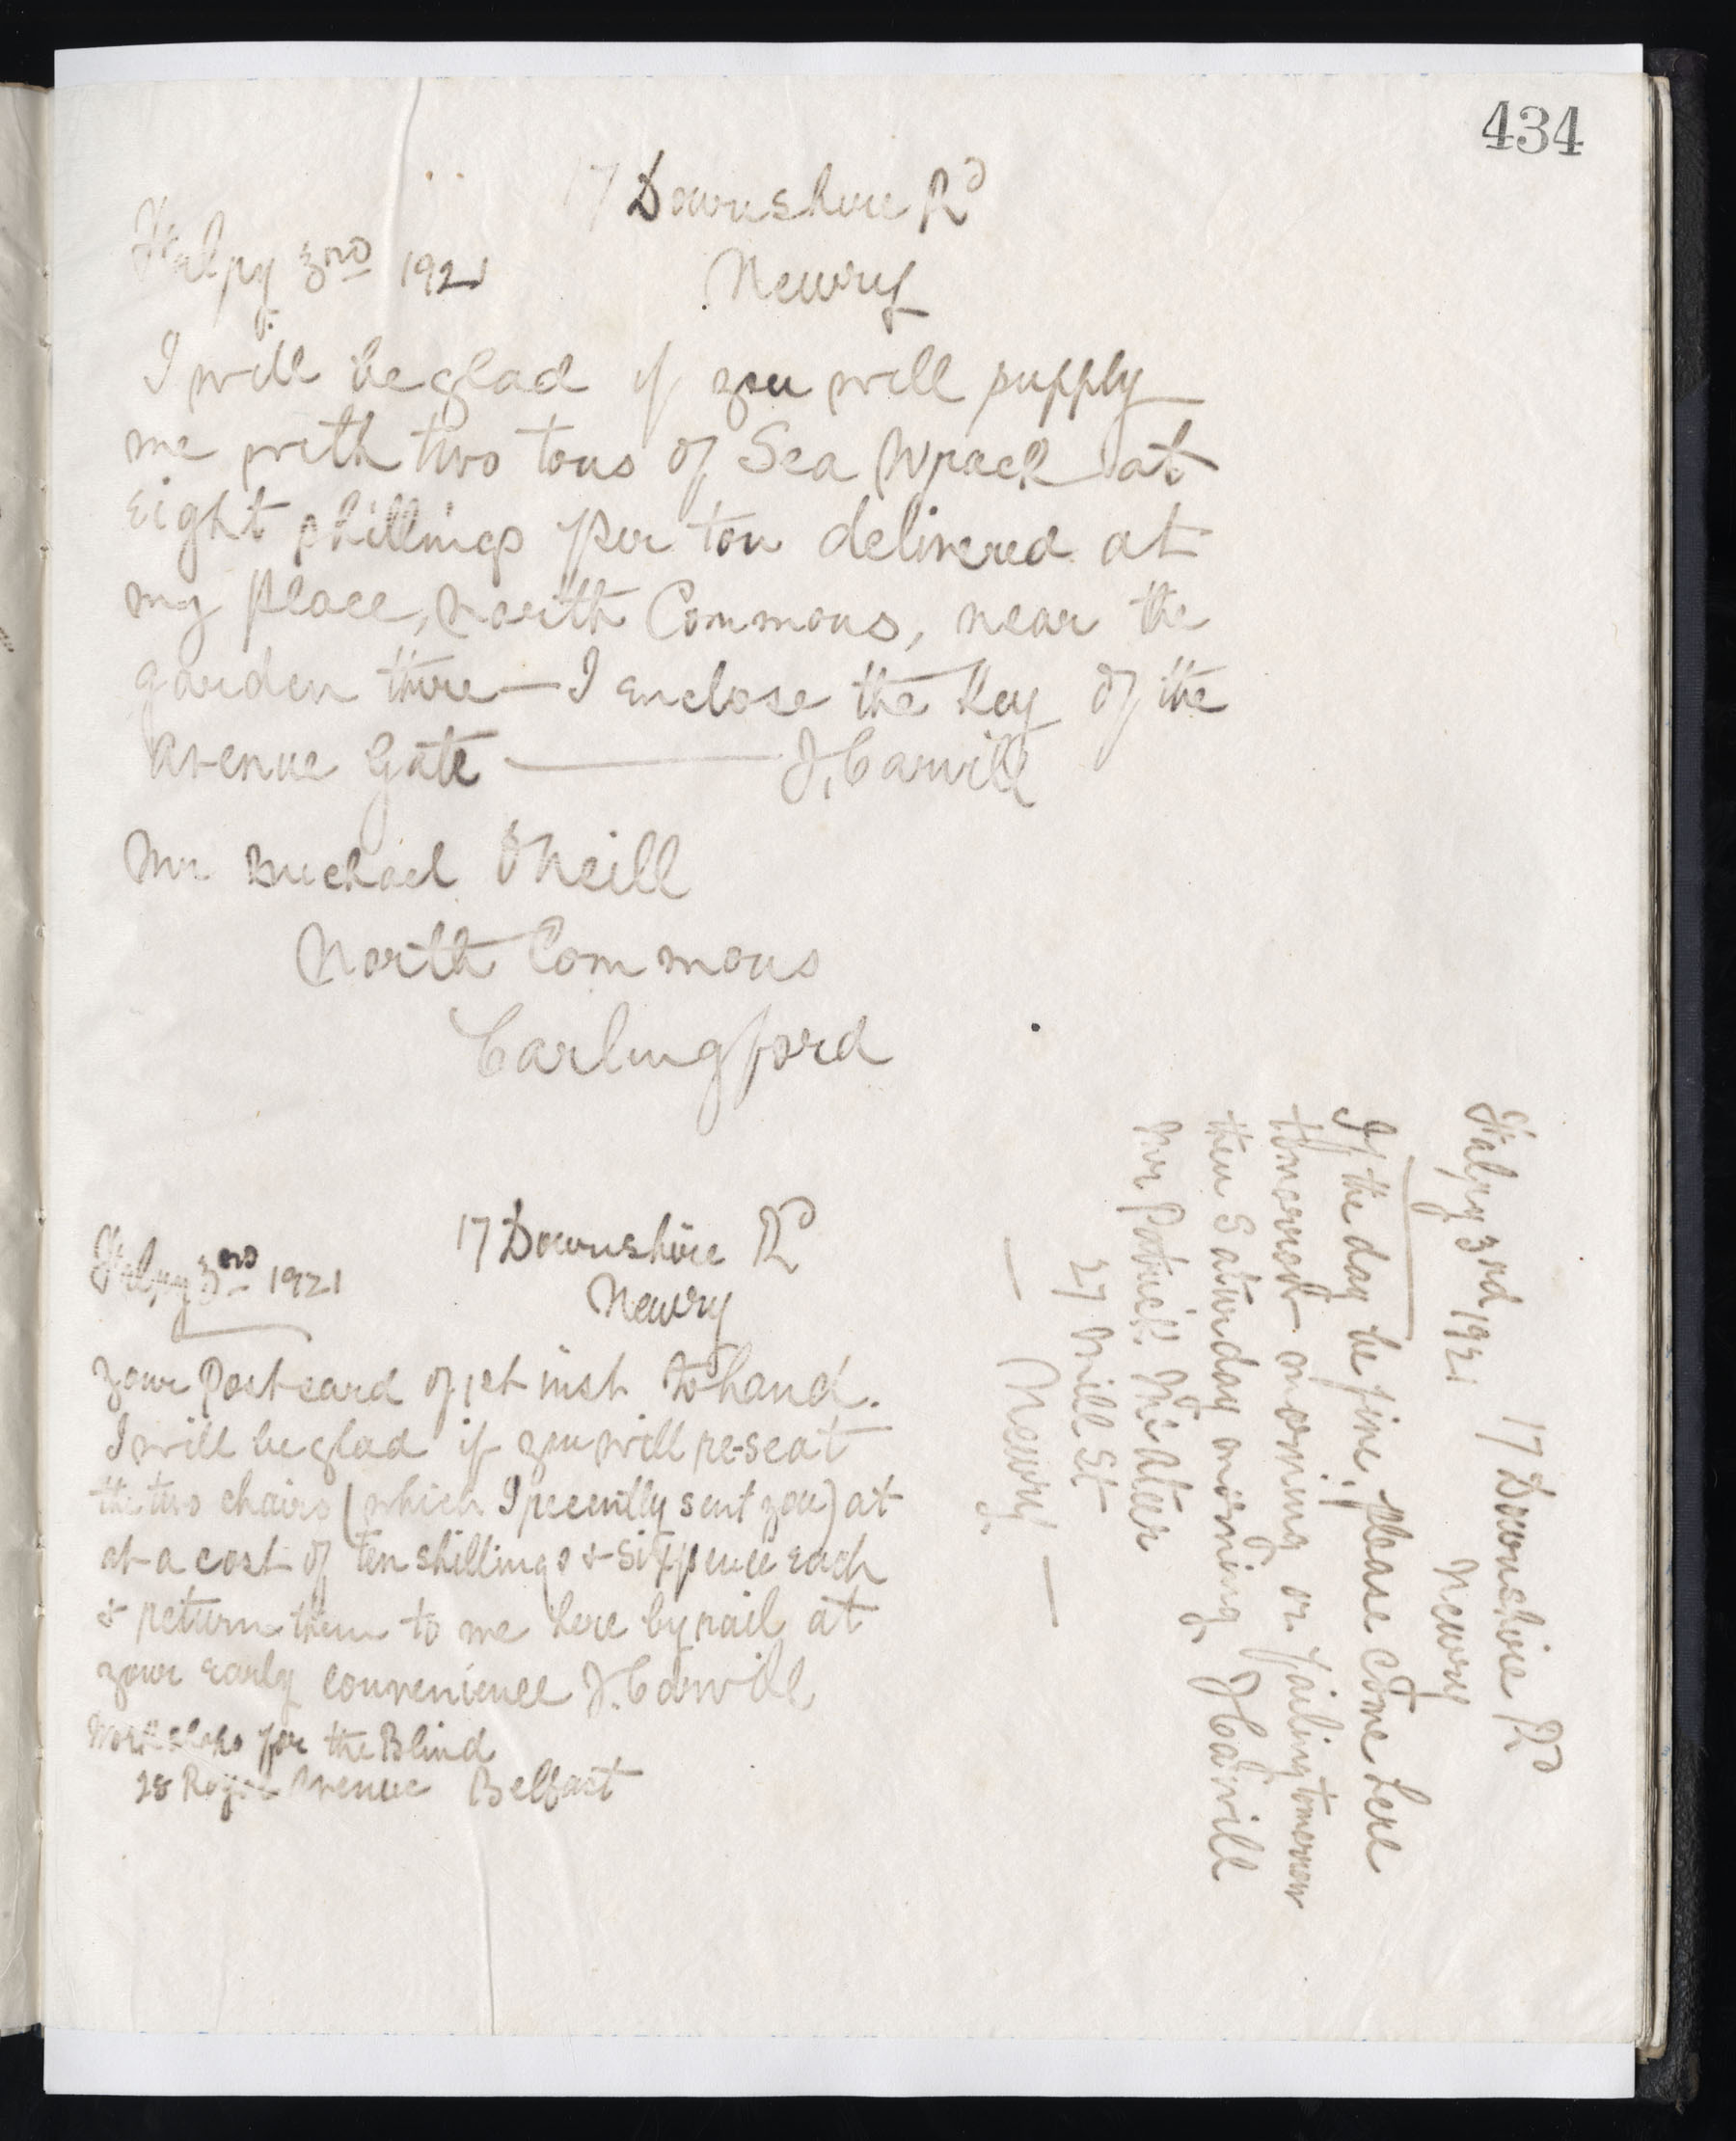 434
17 Downshire Rd
Feby 3rd 1921
Newry
I will be glad if you will supply
me with two tons of Sea Wrack at
eight shillings per ton delivered at
my place, North Commons, near the
garden there — I enclose the key of the
avenue gate — J. Carvill
Mr Michael O'Neill
North Commons
Carlingford
17 Downshire Rd
Feby 3rd 1921
Newry
your Post card of 1st inst to hand.
I will be glad if you will re-seat
the two chairs (which I recently sent you) at
at a cost of ten shillings & sixpence each
& return them to me here by rail at
your early convenience J. Carvill
Workshops for the Blind
28 Royal Avenue Belfast
17 Downshire Rd
Feby 3rd 1921
Newry
If the day be fine, please come here
tomorrow morning or failing tomorrow
then Saturday morning, J Carvill
Mr Patrick McAteer
27 Mill St
— Newry. —